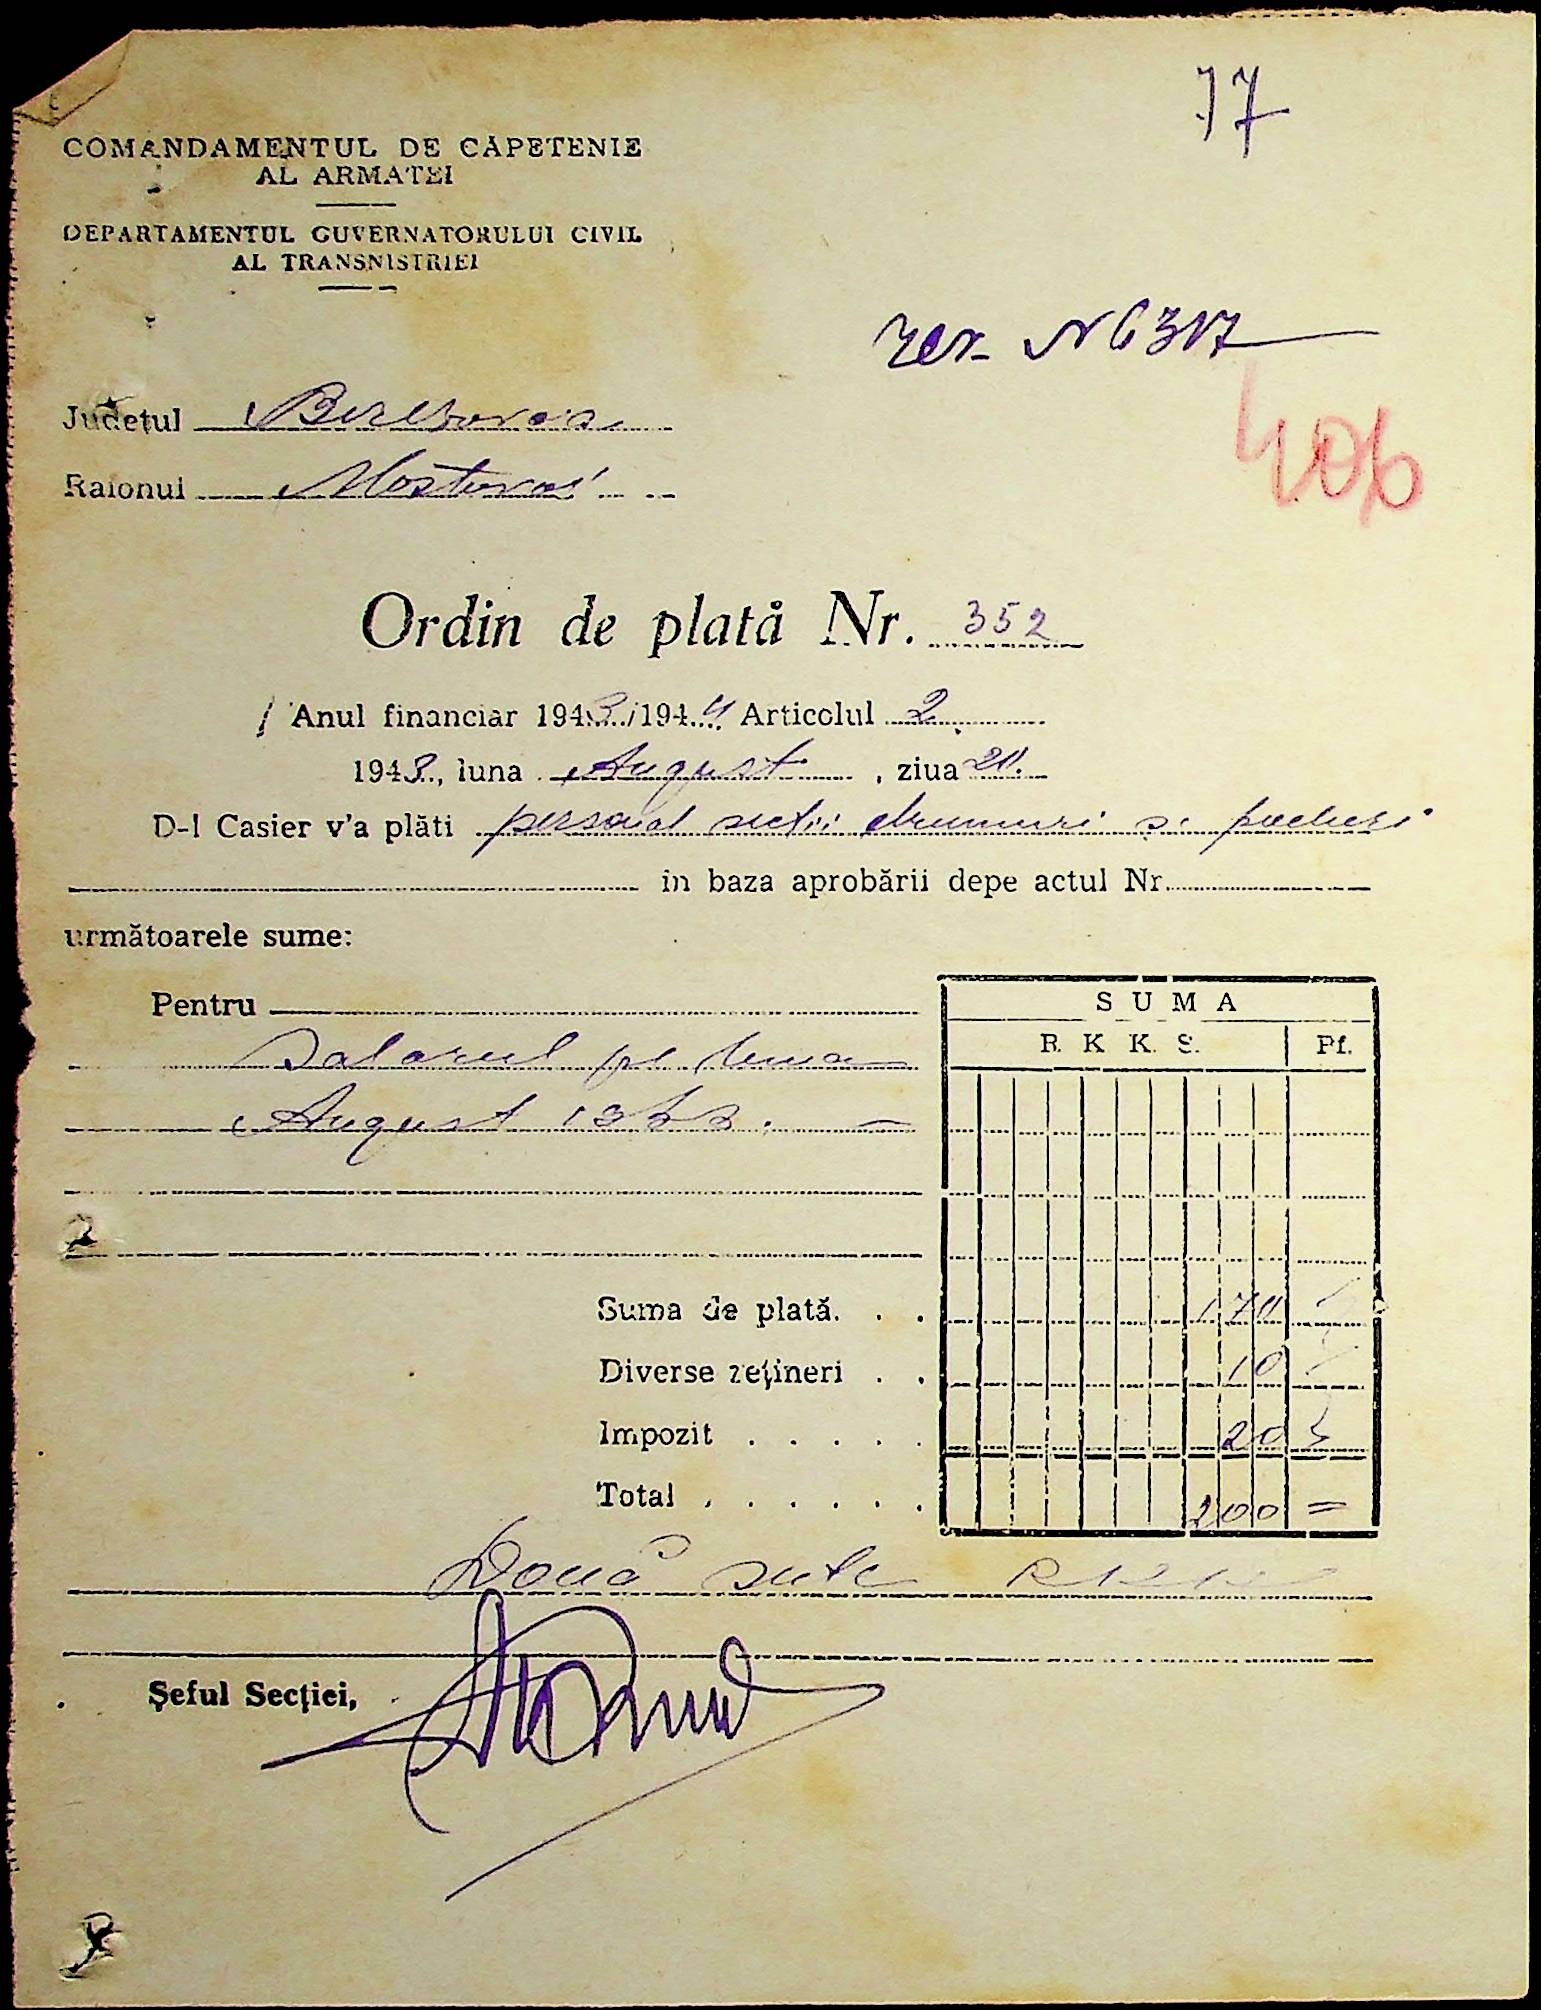 77
COMANDAMENTUL DE CĂPETENIE
AL ARMATEI
DEPARTAMENTUL GUVERNATORULUI CIVIL
AL TRANSNISTRIEI
N 6317
406
Județul Berezovca
Raionul Mostovoi
Ordin de plată Nr. 352
Anul financiar 1943/1944 Articolul 2
1943, luna August, ziua 20.
D-l Casier v'a plăti personal secții drumuri și poduri
in baza aprobării depe actul Nr.
următoarele sume:
Pentru
SUMA
R. K. K. S. Pf.
Salarul pe luna
August 1943. —
Suma de plată. . . 170
Diverse rețineri . . 10
Impozit . . . . . 20
Total . . . . . . 200 =
Două sute
Șeful Secției,